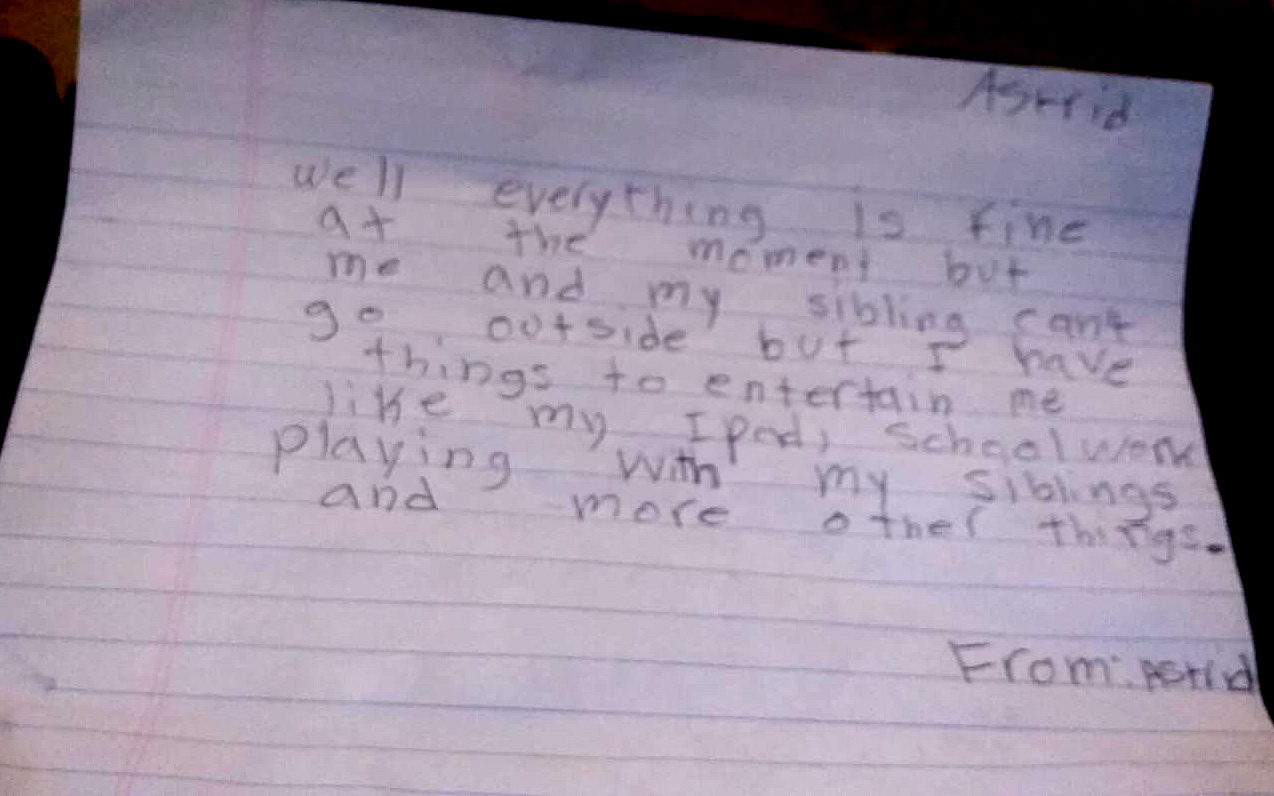 Astrid
well everything is fine
at the moment but
me and my sibling cant
go outside but I have
things to entertain me
like my Ipad, school work
playing with my siblings
and more other things.
From: Astrid